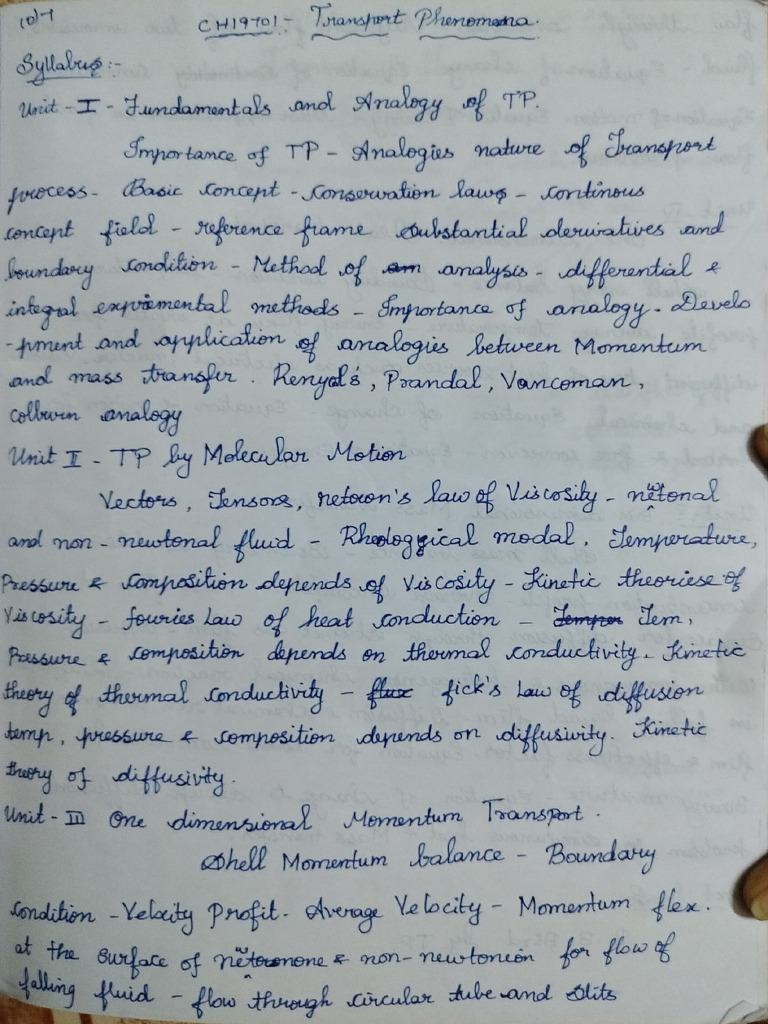 CH19701:- Transport Phenomena.
Syllabus:-
Unit - I - Fundamentals and Analogy of TP.
Importance of TP - Analogies nature of Transport
process - Basic concept - conservation laws - continous
concept field - reference frame substantial derivatives and
boundary condition - Method of am analysis - differential &
integral expriemental methods - Importance of analogy - Develo
-pment and application of analogies between Momentum
and mass transfer. Renyal's, Prandal, Vancoman,
collurn analogy
Unit II - TP by Molecular Motion
Vectors, Tensors, netown's law of Viscosity - netonal
and non-newtonal fluid - Rheological modal. Temperature,
Pressure & composition depends of Viscosity - Kinetic theoriese of
Viscosity - fouries Law of heat conduction - Temper Tem,
Pressure & composition depends on thermal conductivity. Kinetic
theory of thermal conductivity - flux fick's Law of diffusion
temp, pressure & composition depends on diffusivity. Kinetic
theory of diffusivity.
Unit - III One dimensional Momentum Transport.
Shell Momentum balance - Boundary
condition - Velocity Profit - Average Velocity - Momentum flex.
at the surface of & non-newtoneion for flow of
falling fluid - flow through circular tube and slits